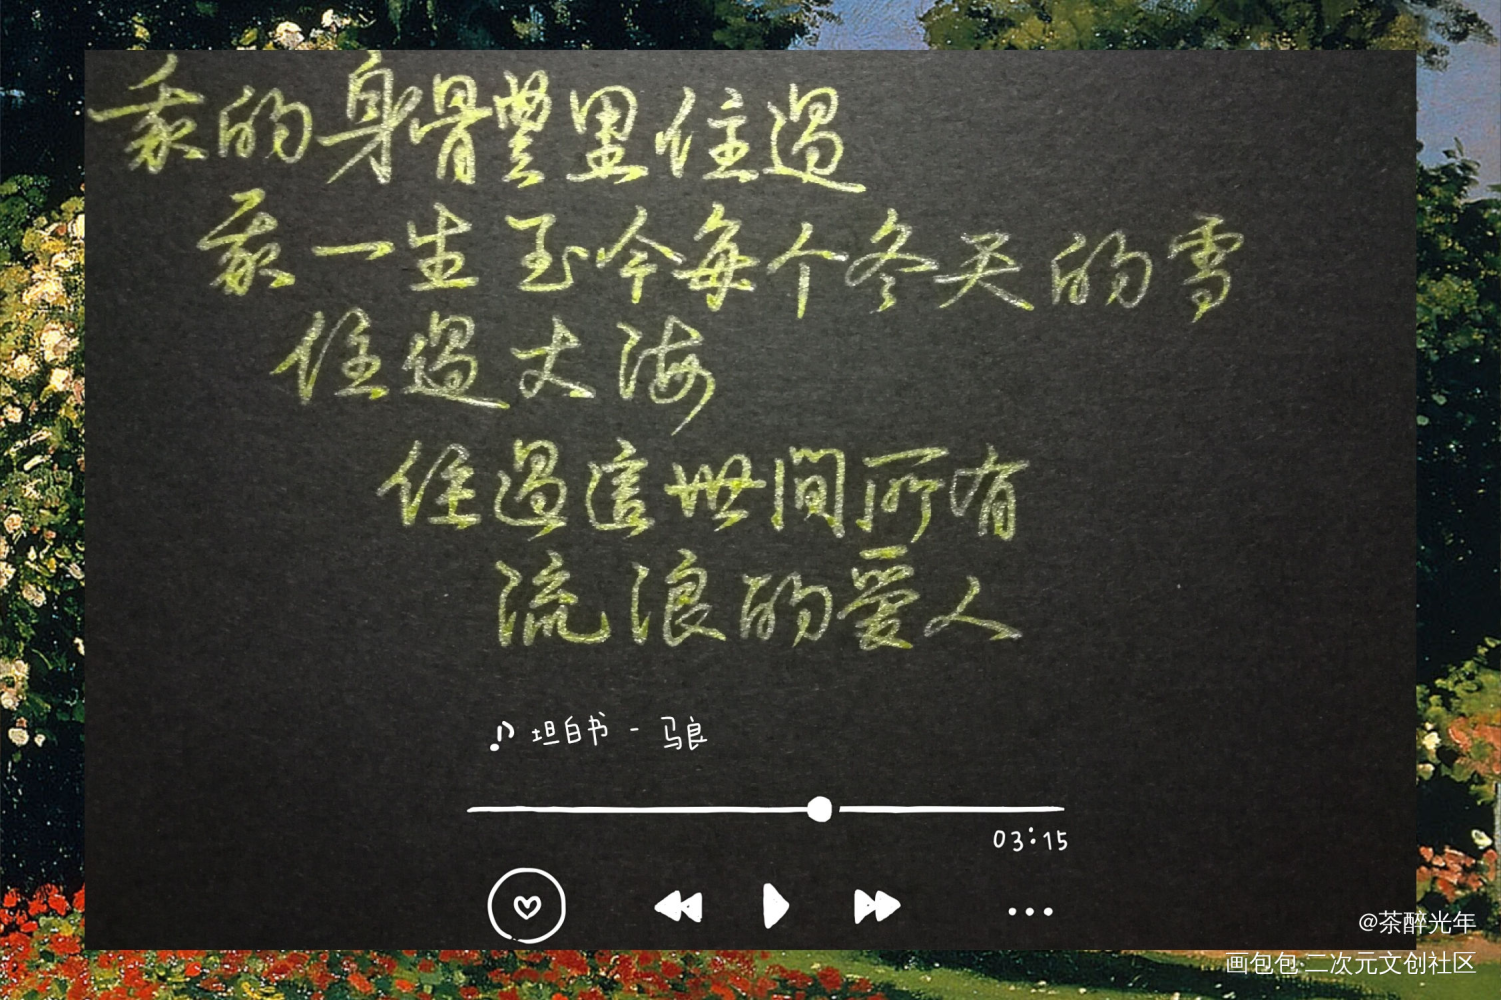 我的身體里住過
我一生至今每个冬天的雪
住過大海
住過這世間所有
流浪的愛人
坦白书 - 马良
03:15
@茶醉光年
画包包·二次元文创社区